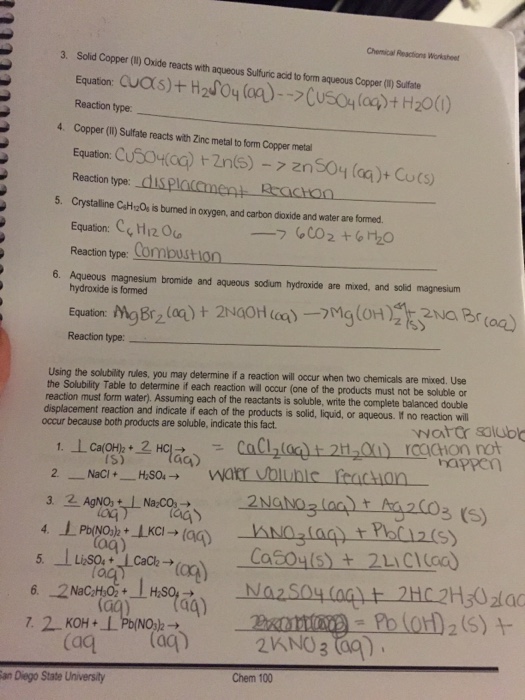 Chemical Reactions Worksheet
3. Solid Copper (II) Oxide reacts with aqueous Sulfuric acid to form aqueous Copper (II) Sulfate
Equation: CuO(s) + H2SO4 (aq) --> CuSO4 (aq) + H2O(l)
Reaction type:
4. Copper (II) Sulfate reacts with Zinc metal to form Copper metal
Equation: CuSO4(aq) + Zn(s) -> ZnSO4 (aq) + Cu(s)
Reaction type: displacement Reaction
5. Crystalline C6H12O6 is burned in oxygen, and carbon dioxide and water are formed.
Equation: C6H12O6 -> 6CO2 + 6H2O
Reaction type: Combustion
6. Aqueous magnesium bromide and aqueous sodium hydroxide are mixed, and solid magnesium
hydroxide is formed
Equation: MgBr2 (aq) + 2NaOH (aq) -> Mg(OH)2 (s) + 2NaBr(aq)
Reaction type:
Using the solubility rules, you may determine if a reaction will occur when two chemicals are mixed. Use
the Solubility Table to determine if each reaction will occur (one of the products must not be soluble or
reaction must form water). Assuming each of the reactants is soluble, write the complete balanced double
displacement reaction and indicate if each of the products is solid, liquid, or aqueous. If no reaction will
occur because both products are soluble, indicate this fact.
water soluble
1. 1 Ca(OH)2 + 2 HCl → = CaCl2(aq) + 2H2O(l) reaction not
(s) (aq) happen
2. __ NaCl + __ H2SO4 → water reaction
3. 2 AgNO3 + 1 Na2CO3 → 2NaNO3(aq) + Ag2CO3 (s)
(aq) (aq)
4. 1 Pb(NO3)2 + 1 KCl → (aq) KNO3(aq) + PbCl2(s)
(aq)
5. 1 Li2SO4 + 1 CaCl2 → CaSO4(s) + 2LiCl(aq)
(aq) (aq)
6. 2 NaC2H3O2 + 1 H2SO4 → Na2SO4(aq) + 2HC2H3O2(aq
(aq) (aq)
7. 2 KOH + 1 Pb(NO3)2 → = Pb(OH)2(s) +
(aq (aq) 2KNO3(aq).
San Diego State University Chem 100